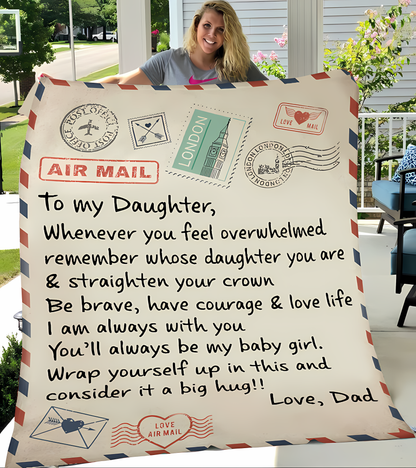 POST OFFICE
POST OFFICE
LONDON
LOVE MAIL
AIR MAIL
To my Daughter,
Whenever you feel overwhelmed
remember whose daughter you are
& straighten your crown
Be brave, have courage & love life
I am always with you
You'll always be my baby girl.
Wrap yourself up in this and
consider it a big hug!!
Love, Dad
LOVE
AIR MAIL